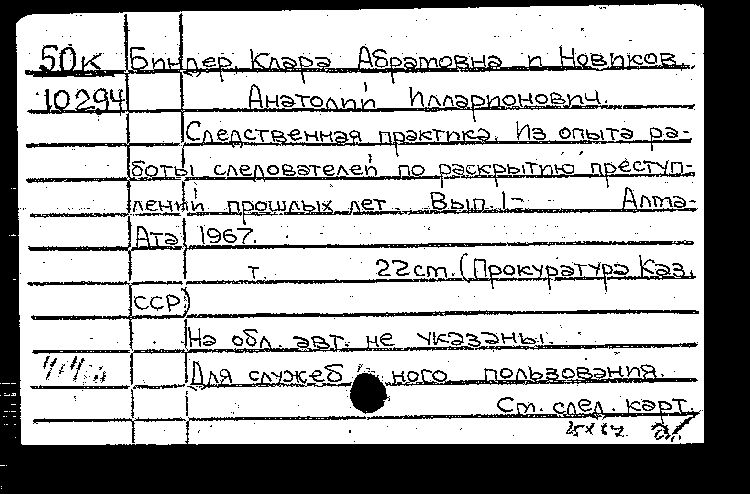 50к Биндер, Клара Абрамовна и Новиков,
10294 Анатолий Илларионович.
Следственная практика. Из опыта ра-
боты следователей по раскрытию преступ-
лений прошлых лет. Вып. 1- Алма-
Ата 1967.
т. 22см. (Прокуратура Каз.
ССР)
На обл. авт. не указаны.
Для служебного пользования.
См. след. карт.